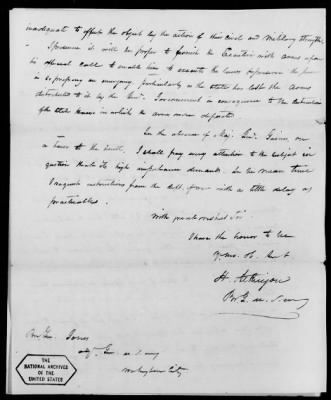 inadequate to effect the object by the action of his civil and Military
I presume it will be proper to furnish the Executive with arms upon
his official call to enable him to execute the laws & preserve the peace
in so pressing an emergency, particularly as the state has lost the Arms
distributed to it by the Genl. Government in consequence of the destruction
of the State House in which the arms were deposited.
In the absence of Maj. Genl. Gaines, on
a tour to the South, I shall pay every attention to the subject in
question that its high importance demands. In the mean time
I request instructions from the dept. of war with as little delay as
practicable.
With great respect Sir
I have the honor to be
Yr. mo. ob. Sert
H. Atkinson
Br. G. U.S. Army
Br. Gn. Jones
Adj. Gen. U.S. Army
Washington City
THE
NATIONAL ARCHIVES
OF THE
UNITED STATES